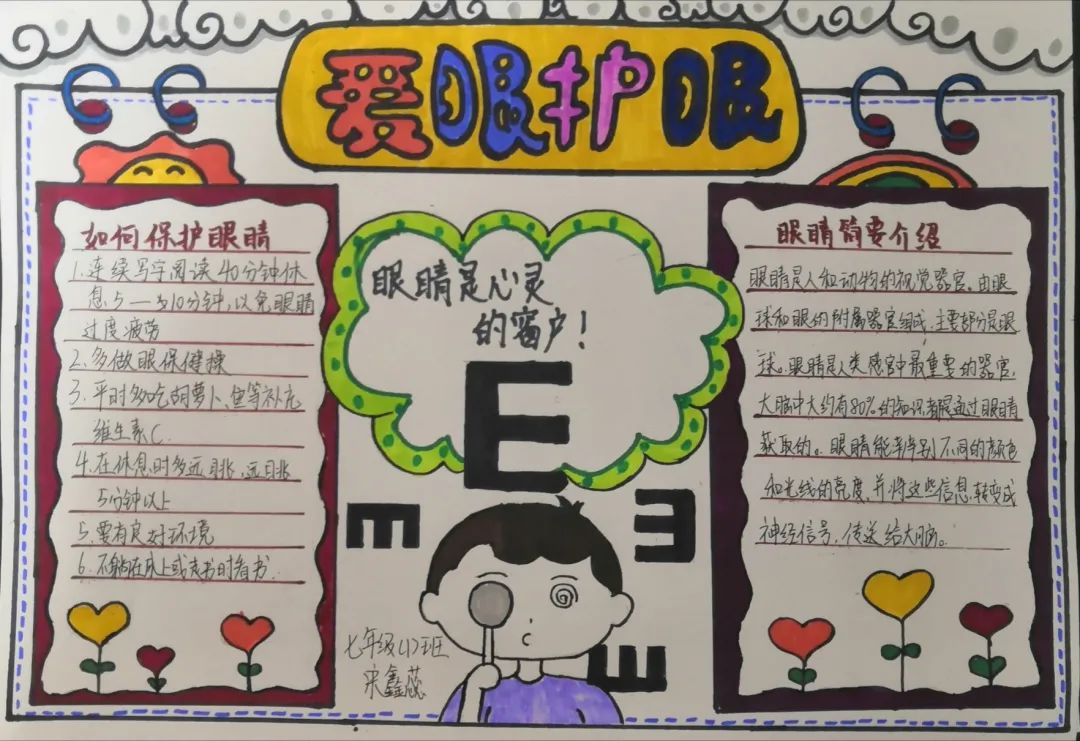 爱眼护眼
如何保护眼睛
1.连续写字阅读40分钟休
息5—至10分钟,以免眼睛
过度疲劳
2.多做眼保健操
3.平时多吃胡萝卜、鱼等补充
维生素C.
4.在休息时多远眺,远眺
5分钟以上
5.要有良好环境
6.不躺在床上或走书时看书.
眼睛是心灵
的窗户!
E
E
E
E
七年级(1)班
宋鑫蕊
眼睛简要介绍
眼睛是人和动物的视觉器官。由眼
球和眼的附属器官组成,主要部分是眼
球。眼睛是人类感官中最重要的器官,
大脑中大约有80%的知识都是通过眼睛
获取的。眼睛能辨别不同的颜色
和光线的亮度,并将这些信息转变成
神经信号,传送给大脑。